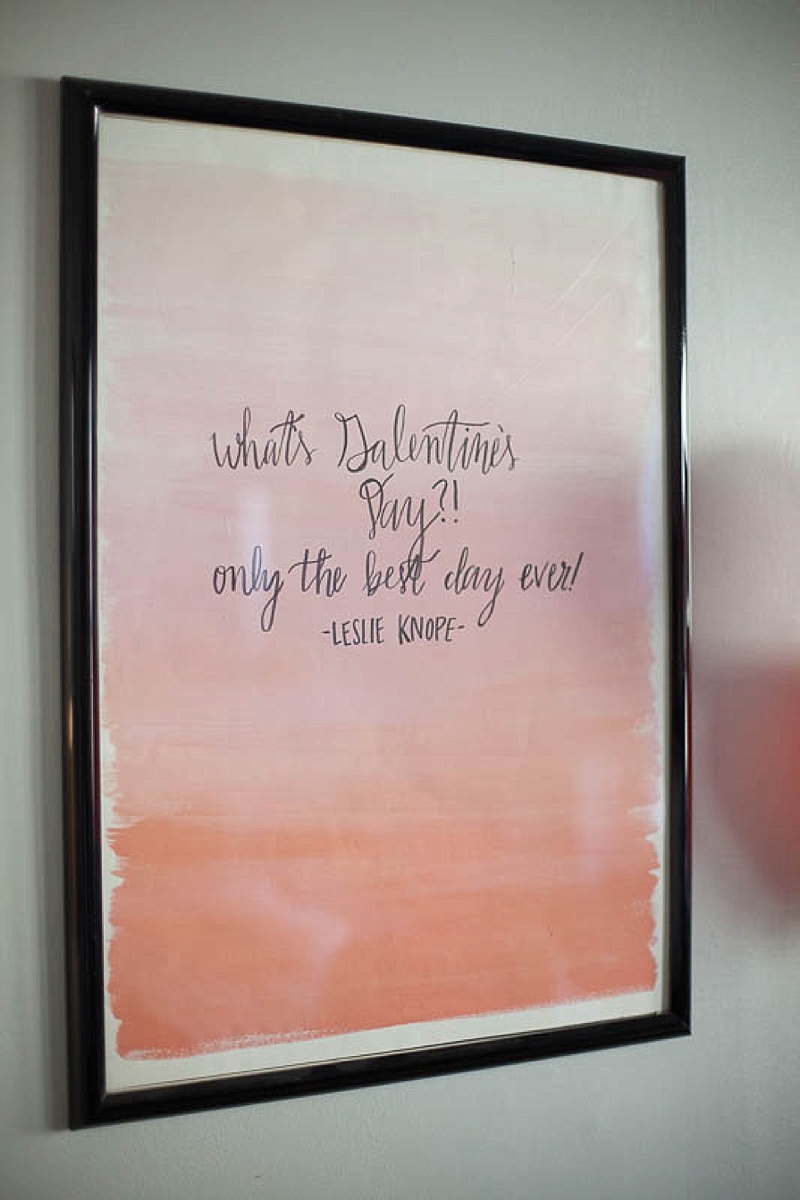 what's Galentine's
Day?!
only the best day ever!
-LESLIE KNOPE-